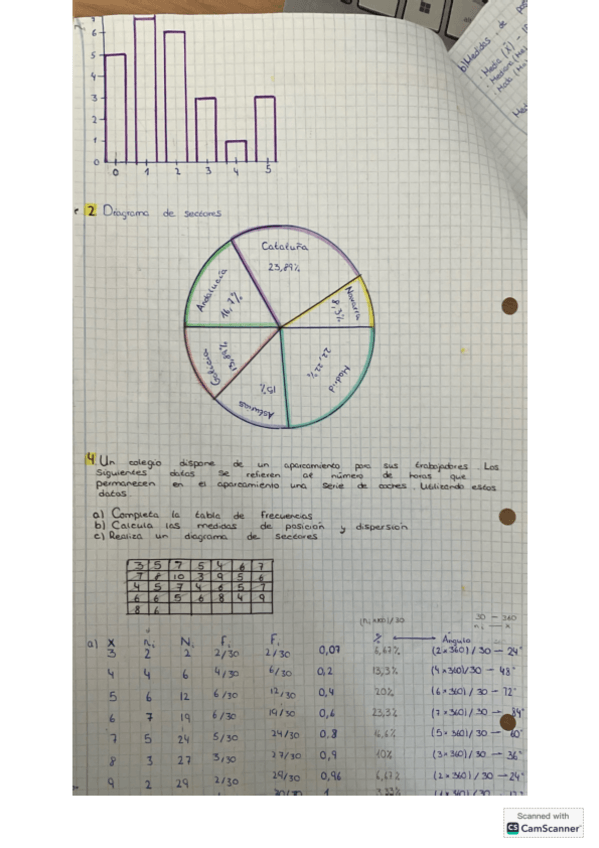 b) Medidas de
· Media (x̄)
· Mediana (Me)
· Moda (Mo)
6
5
4
3
2
1
0
0 1 2 3 4 5
2 Diagrama de sectores
Cataluña
23,89%
Navarra
8,3%
Andalucía
16,7%
Galicia
13,89%
Asturias
15%
Madrid
22,22%
4 Un colegio dispone de un aparcamiento para sus trabajadores. Los
siguientes datos se refieren al número de horas que
permanecen en el aparcamiento una serie de coches. Utilizando estos
datos.
a) Completa la tabla de frecuencias
b) Calcula las medidas de posición y dispersión
c) Realiza un diagrama de sectores
3 5 7 5 4 6 7
7 8 10 3 9 5 6
4 5 7 4 6 5 7
6 6 5 6 8 4 9
8 6
30 — 360
ni — x
a) x ni Ni Fi Fi % Ángulo
3 2 2 2/30 2/30 0,07 6,67% (2x360)/30 — 24°
4 4 6 4/30 6/30 0,2 13,3% (4x360)/30 — 48°
5 6 12 6/30 12/30 0,4 20% (6x360)/30 — 72°
6 7 19 6/30 19/30 0,6 23,3% (7x360)/30 — 84°
7 5 24 5/30 24/30 0,8 (5x360)/30 — 60°
8 3 27 3/30 27/30 0,9 10% (3x360)/30 — 36°
9 2 29 2/30 29/30 0,96 6,67% (2x360)/30 — 24°
30/30 1 3,33%
Scanned with
CS CamScanner